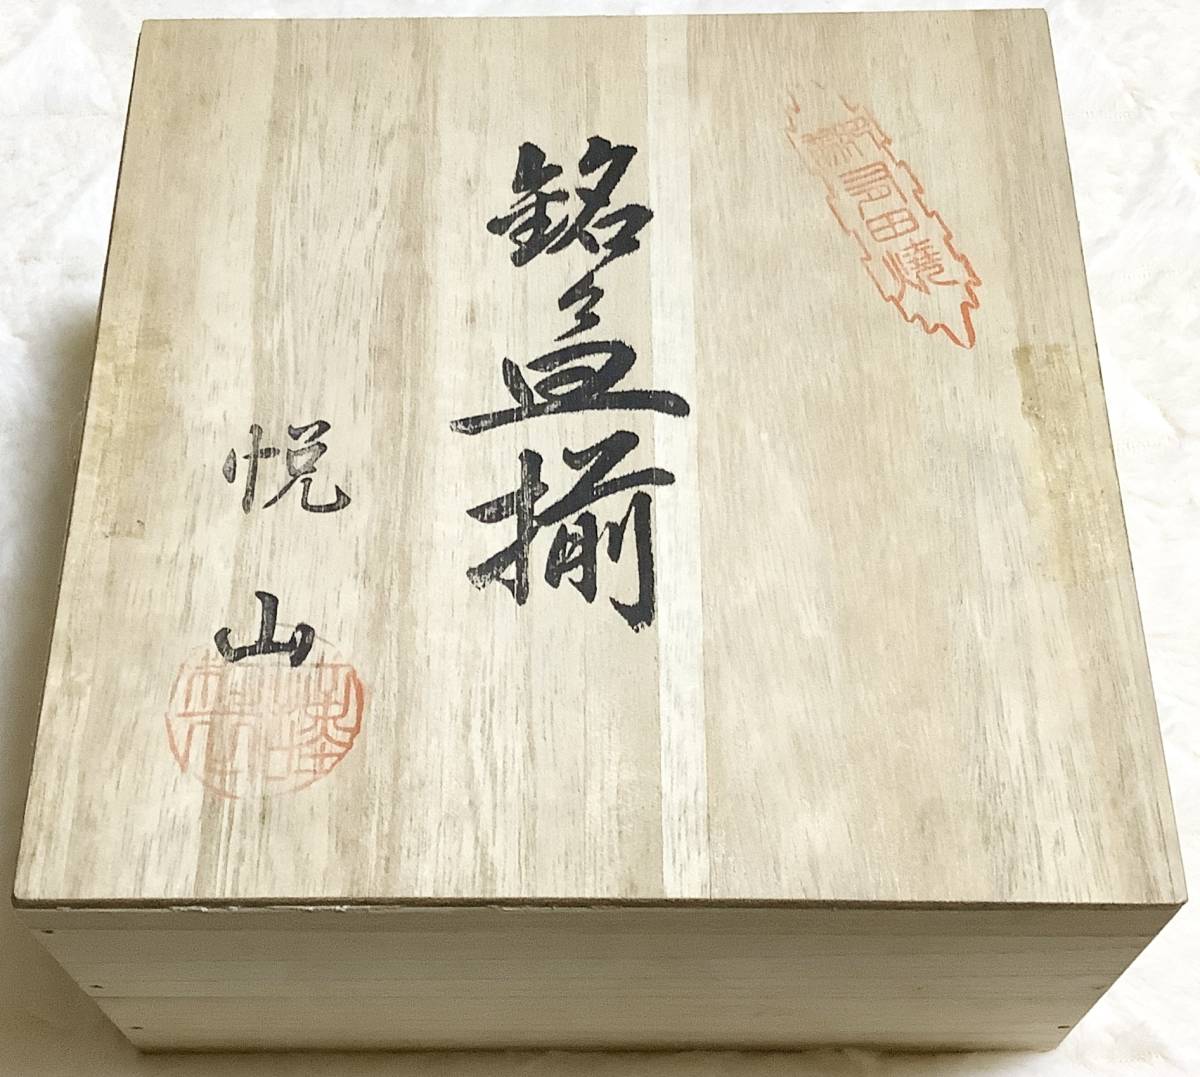 新有田焼
銘々皿揃
悦山